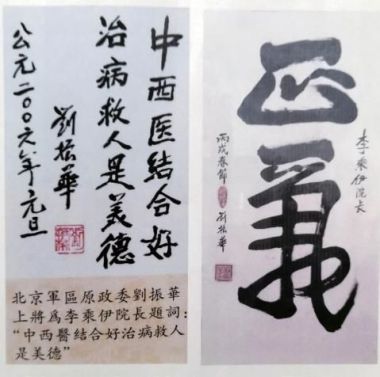 中西医结合好
治病救人是美德
劉振華
公元二〇〇六年元旦
北京軍區原政委劉振華
上將爲李乘伊院長題詞：
“中西醫結合好治病救人
是美德”
李乘伊院长
正義
丙戌春節 劉振華